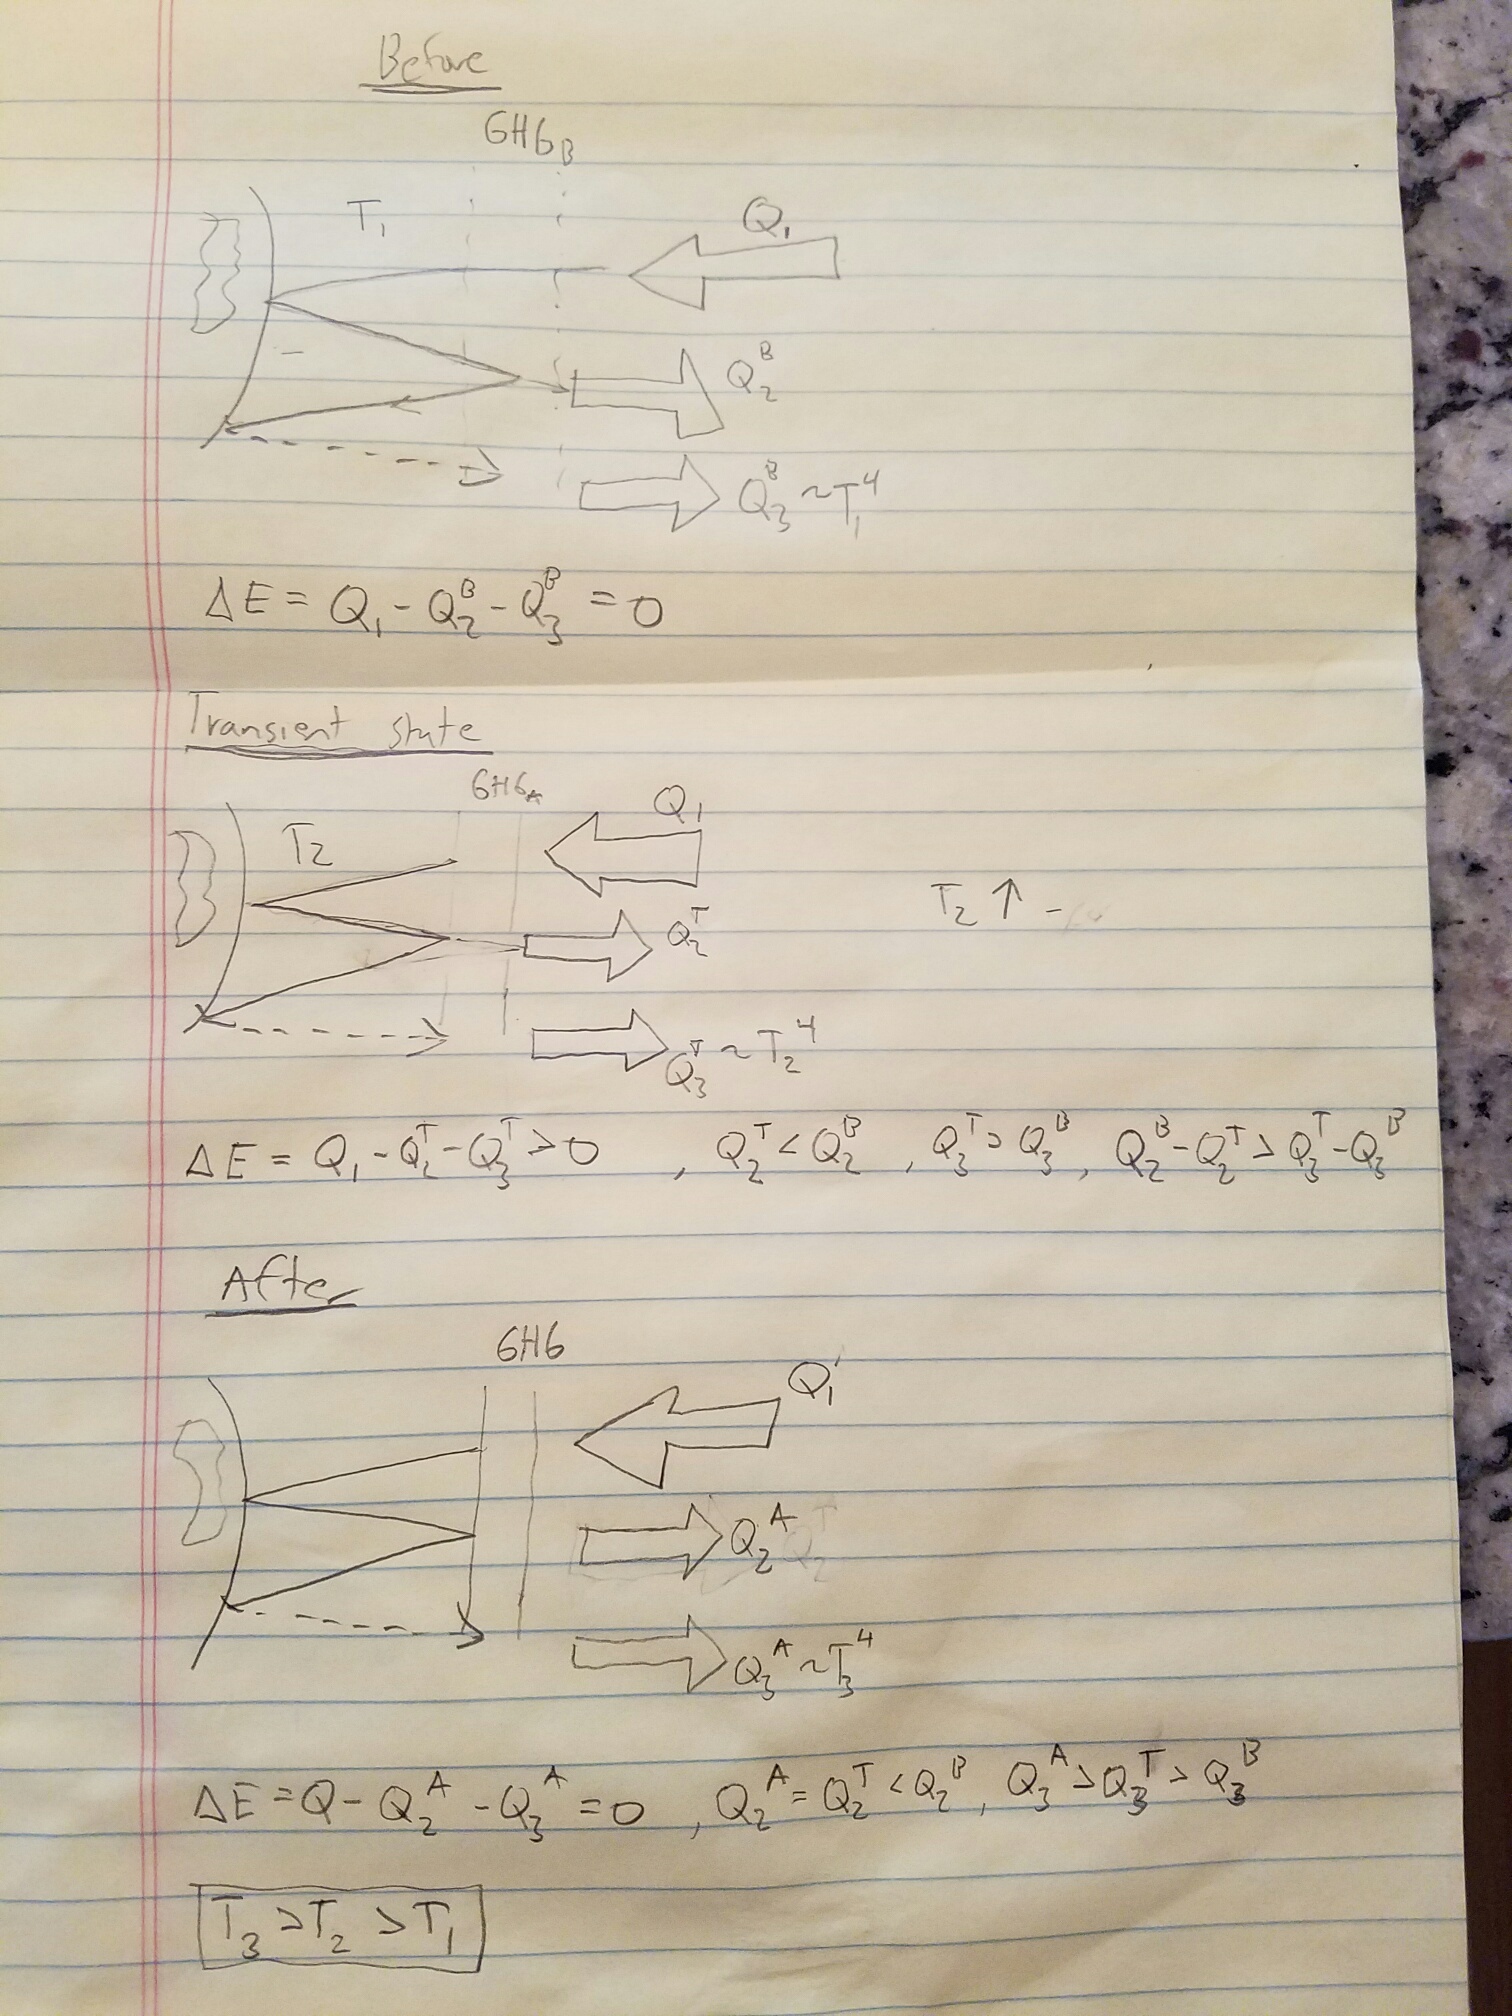 Before
GHG_B
T₁
Q₁
Q₂ᴮ
Q₃ᴮ ~ T₁⁴
ΔE = Q₁ - Q₂ᴮ - Q₃ᴮ = 0
Transient state
GHG_A
Q₁
T₂
T₂ ↑ -
Q₂ᵀ
Q₃ᵀ ~ T₂⁴
ΔE = Q₁ - Q₂ᵀ - Q₃ᵀ > 0 , Q₂ᵀ < Q₂ᴮ , Q₃ᵀ > Q₃ᴮ , Q₂ᴮ - Q₂ᵀ > Q₃ᵀ - Q₃ᴮ
After
GHG
Q₁
Q₂ᴬ
Q₃ᴬ ~ T₃⁴
ΔE = Q - Q₂ᴬ - Q₃ᴬ = 0 , Q₂ᴬ = Q₂ᵀ < Q₂ᴮ , Q₃ᴬ > Q₃ᵀ > Q₃ᴮ
T₃ > T₂ > T₁